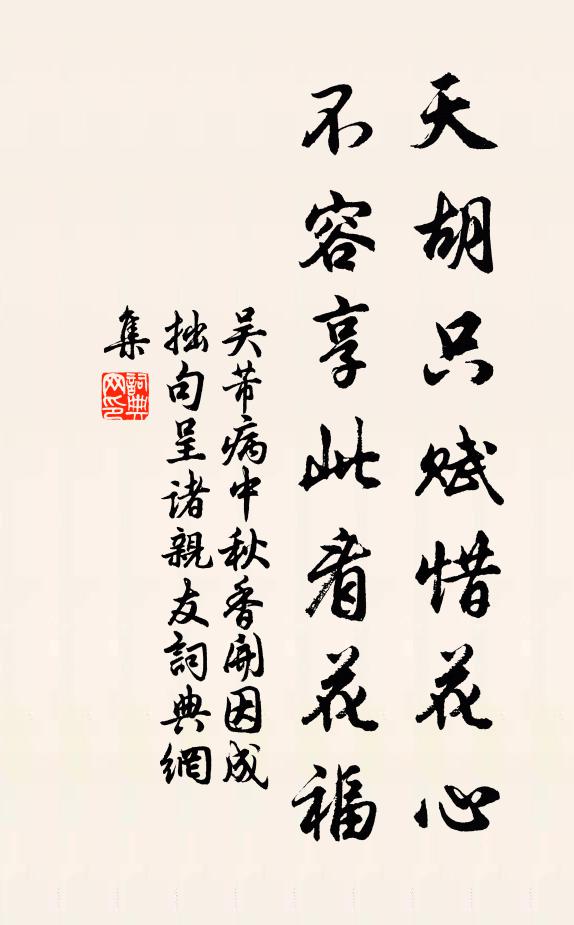 天胡只赋惜花心
不容享此看花福
吴芾病中秋香開因成
拙句呈诸親友詞典網
集
詞典
网印